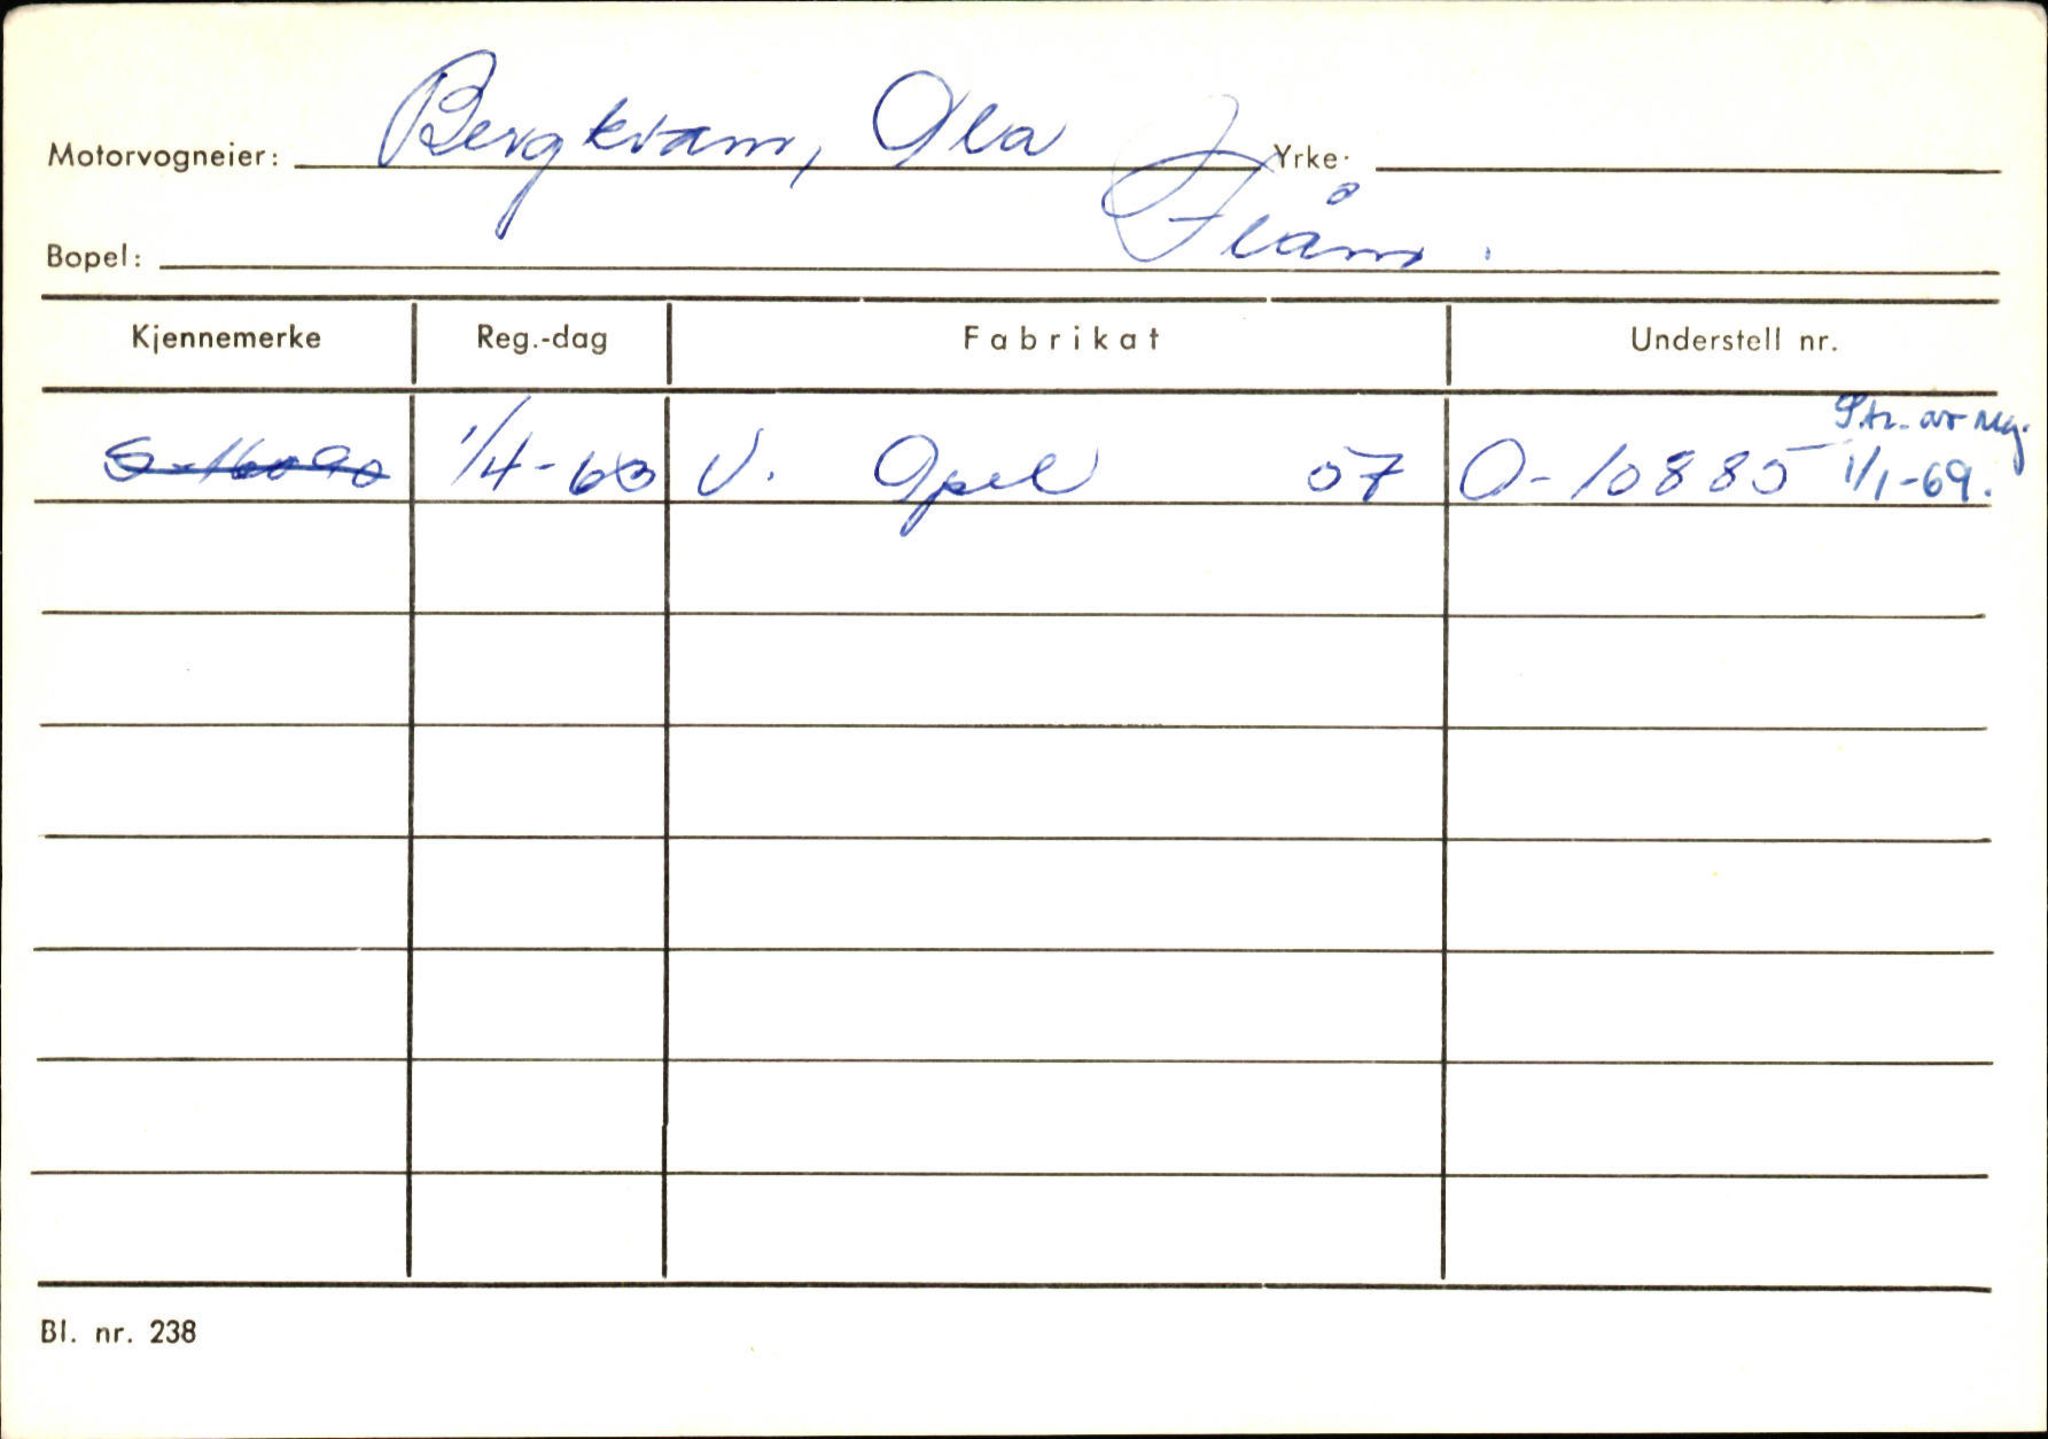 Motorvogneier: Bergkvam, Ola Yrke:
Bopel: Flåm.
Kjennemerke Reg.-dag Fabrikat Understell nr.
Str. av reg.
1/4-63 V. Opel 57 O-10885 1/1-69.
Bl. nr. 238